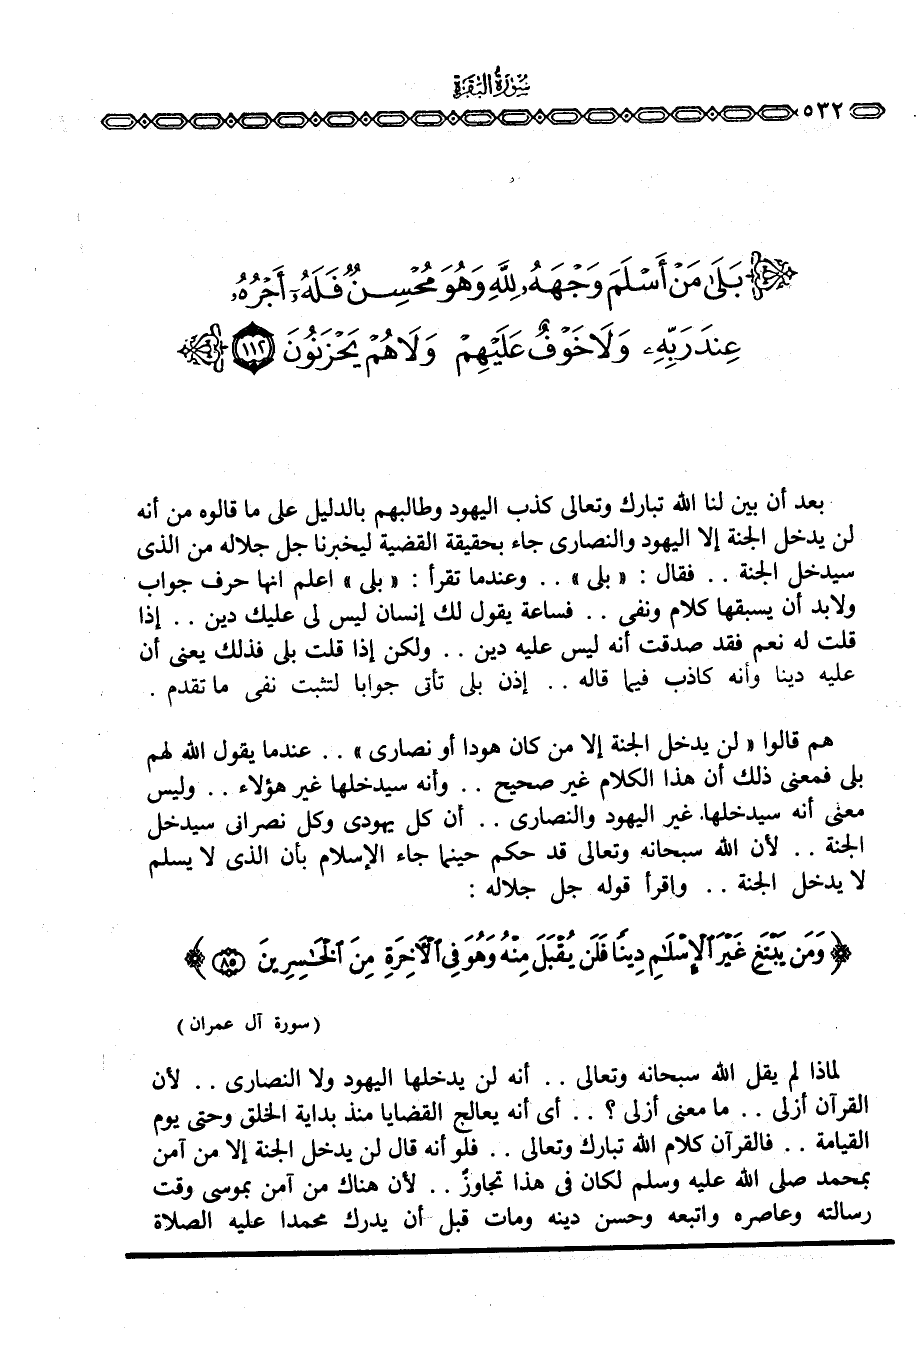 سورة البقرة
٥٣٢
بَلَىٰ مَنْ أَسْلَمَ وَجْهَهُۥ لِلَّهِ وَهُوَ مُحْسِنٌ فَلَهُۥٓ أَجْرُهُۥ
عِندَ رَبِّهِۦ وَلَا خَوْفٌ عَلَيْهِمْ وَلَا هُمْ يَحْزَنُونَ ١١٢
بعد أن بين لنا الله تبارك وتعالى كذب اليهود وطالبهم بالدليل على ما قالوه من أنه
لن يدخل الجنة إلا اليهود والنصارى جاء بحقيقة القضية ليخبرنا جل جلاله من الذى
سيدخل الجنة . . فقال : « بلى » . . وعندما تقرأ : « بلى » اعلم انها حرف جواب
ولابد أن يسبقها كلام ونفى . . فساعة يقول لك إنسان ليس لى عليك دين . . إذا
قلت له نعم فقد صدقت أنه ليس عليه دين . . ولكن إذا قلت بلى فذلك يعنى أن
عليه دينا وأنه كاذب فيما قاله . . إذن بلى تأتى جوابا لتثبت نفى ما تقدم .
هم قالوا « لن يدخل الجنة إلا من كان هودا أو نصارى » . . عندما يقول الله لهم
بلى فمعنى ذلك أن هذا الكلام غير صحيح . . وأنه سيدخلها غير هؤلاء . . وليس
معنى أنه سيدخلها غير اليهود والنصارى . . أن كل يهودى وكل نصرانى سيدخل
الجنة . . لأن الله سبحانه وتعالى قد حكم حينما جاء الإسلام بأن الذى لا يسلم
لا يدخل الجنة . . واقرأ قوله جل جلاله :
﴿ وَمَن يَبْتَغِ غَيْرَ ٱلْإِسْلَٰمِ دِينًا فَلَن يُقْبَلَ مِنْهُ وَهُوَ فِى ٱلْآخِرَةِ مِنَ ٱلْخَٰسِرِينَ ٨٥ ﴾
( سورة آل عمران )
لماذا لم يقل الله سبحانه وتعالى . . أنه لن يدخلها اليهود ولا النصارى . . لأن
القرآن أزلى . . ما معنى أزلى ؟ . . أى أنه يعالج القضايا منذ بداية الخلق وحتى يوم
القيامة . . فالقرآن كلام الله تبارك وتعالى . . فلو أنه قال لن يدخل الجنة إلا من آمن
بمحمد صلى الله عليه وسلم لكان فى هذا تجاوزً . . لأن هناك من آمن بموسى وقت
رسالته وعاصره واتبعه وحسن دينه ومات قبل أن يدرك محمدا عليه الصلاة